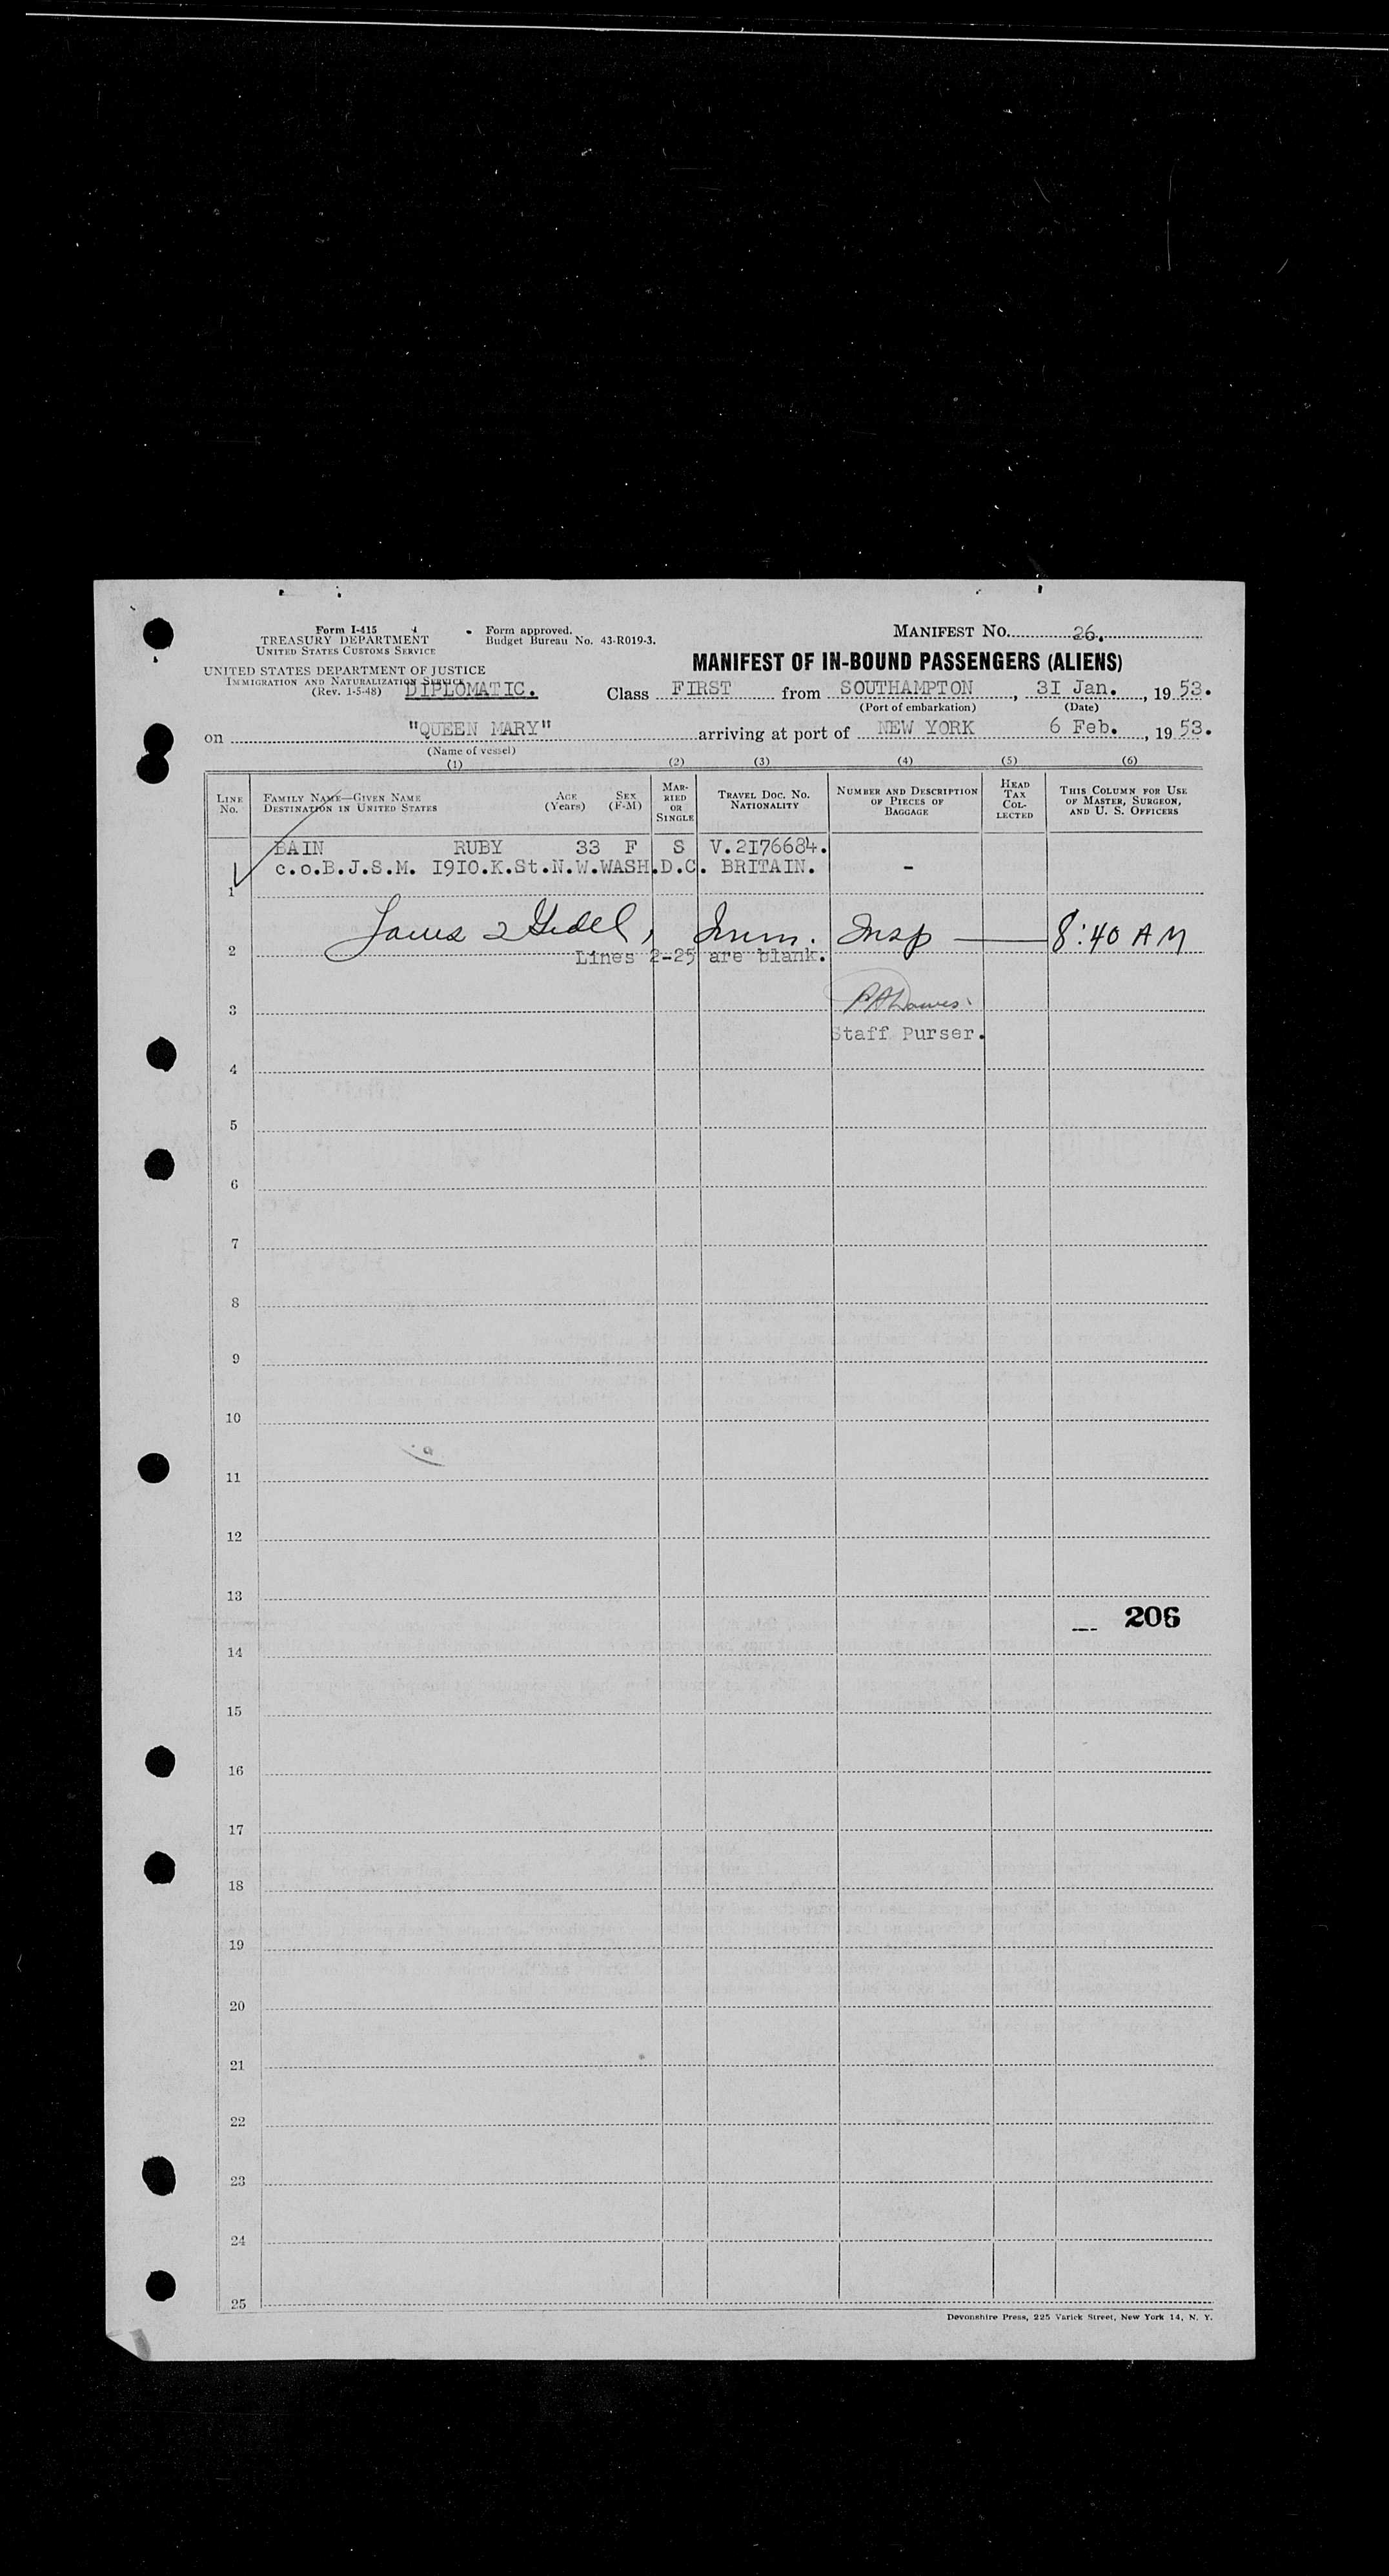 Form I-415
TREASURY DEPARTMENT
UNITED STATES CUSTOMS SERVICE
Form approved.
Budget Bureau No. 43-R019-3.
MANIFEST NO. 26.
UNITED STATES DEPARTMENT OF JUSTICE
IMMIGRATION AND NATURALIZATION SERVICE
(Rev. 1-5-48) DIPLOMATIC.
MANIFEST OF IN-BOUND PASSENGERS (ALIENS)
Class FIRST from SOUTHAMPTON, 3I Jan., 19 53.
(Port of embarkation) (Date)
on "QUEEN MARY" arriving at port of NEW YORK 6 Feb., 19 53.
(Name of vessel)
(1) (2) (3) (4) (5) (6)
LINE NO.
FAMILY NAME—GIVEN NAME
DESTINATION IN UNITED STATES
AGE (Years)
SEX (F-M)
MARRIED OR SINGLE
TRAVEL DOC. NO.
NATIONALITY
NUMBER AND DESCRIPTION
OF PIECES OF
BAGGAGE
HEAD
TAX
COL-
LECTED
THIS COLUMN FOR USE
OF MASTER, SURGEON,
AND U. S. OFFICERS
BAIN RUBY 33 F S V.2I76684.
c.o.B.J.S.M. I9I0.K.St.N.W.WASH.D.C. BRITAIN. -
1
Imm. Insp — 8:40 AM
2
Lines 2-25 are blank.
3
Staff Purser.
4
5
6
7
8
9
10
11
12
13
206
14
15
16
17
18
19
20
21
22
23
24
25
Devonshire Press, 225 Varick Street, New York 14, N. Y.